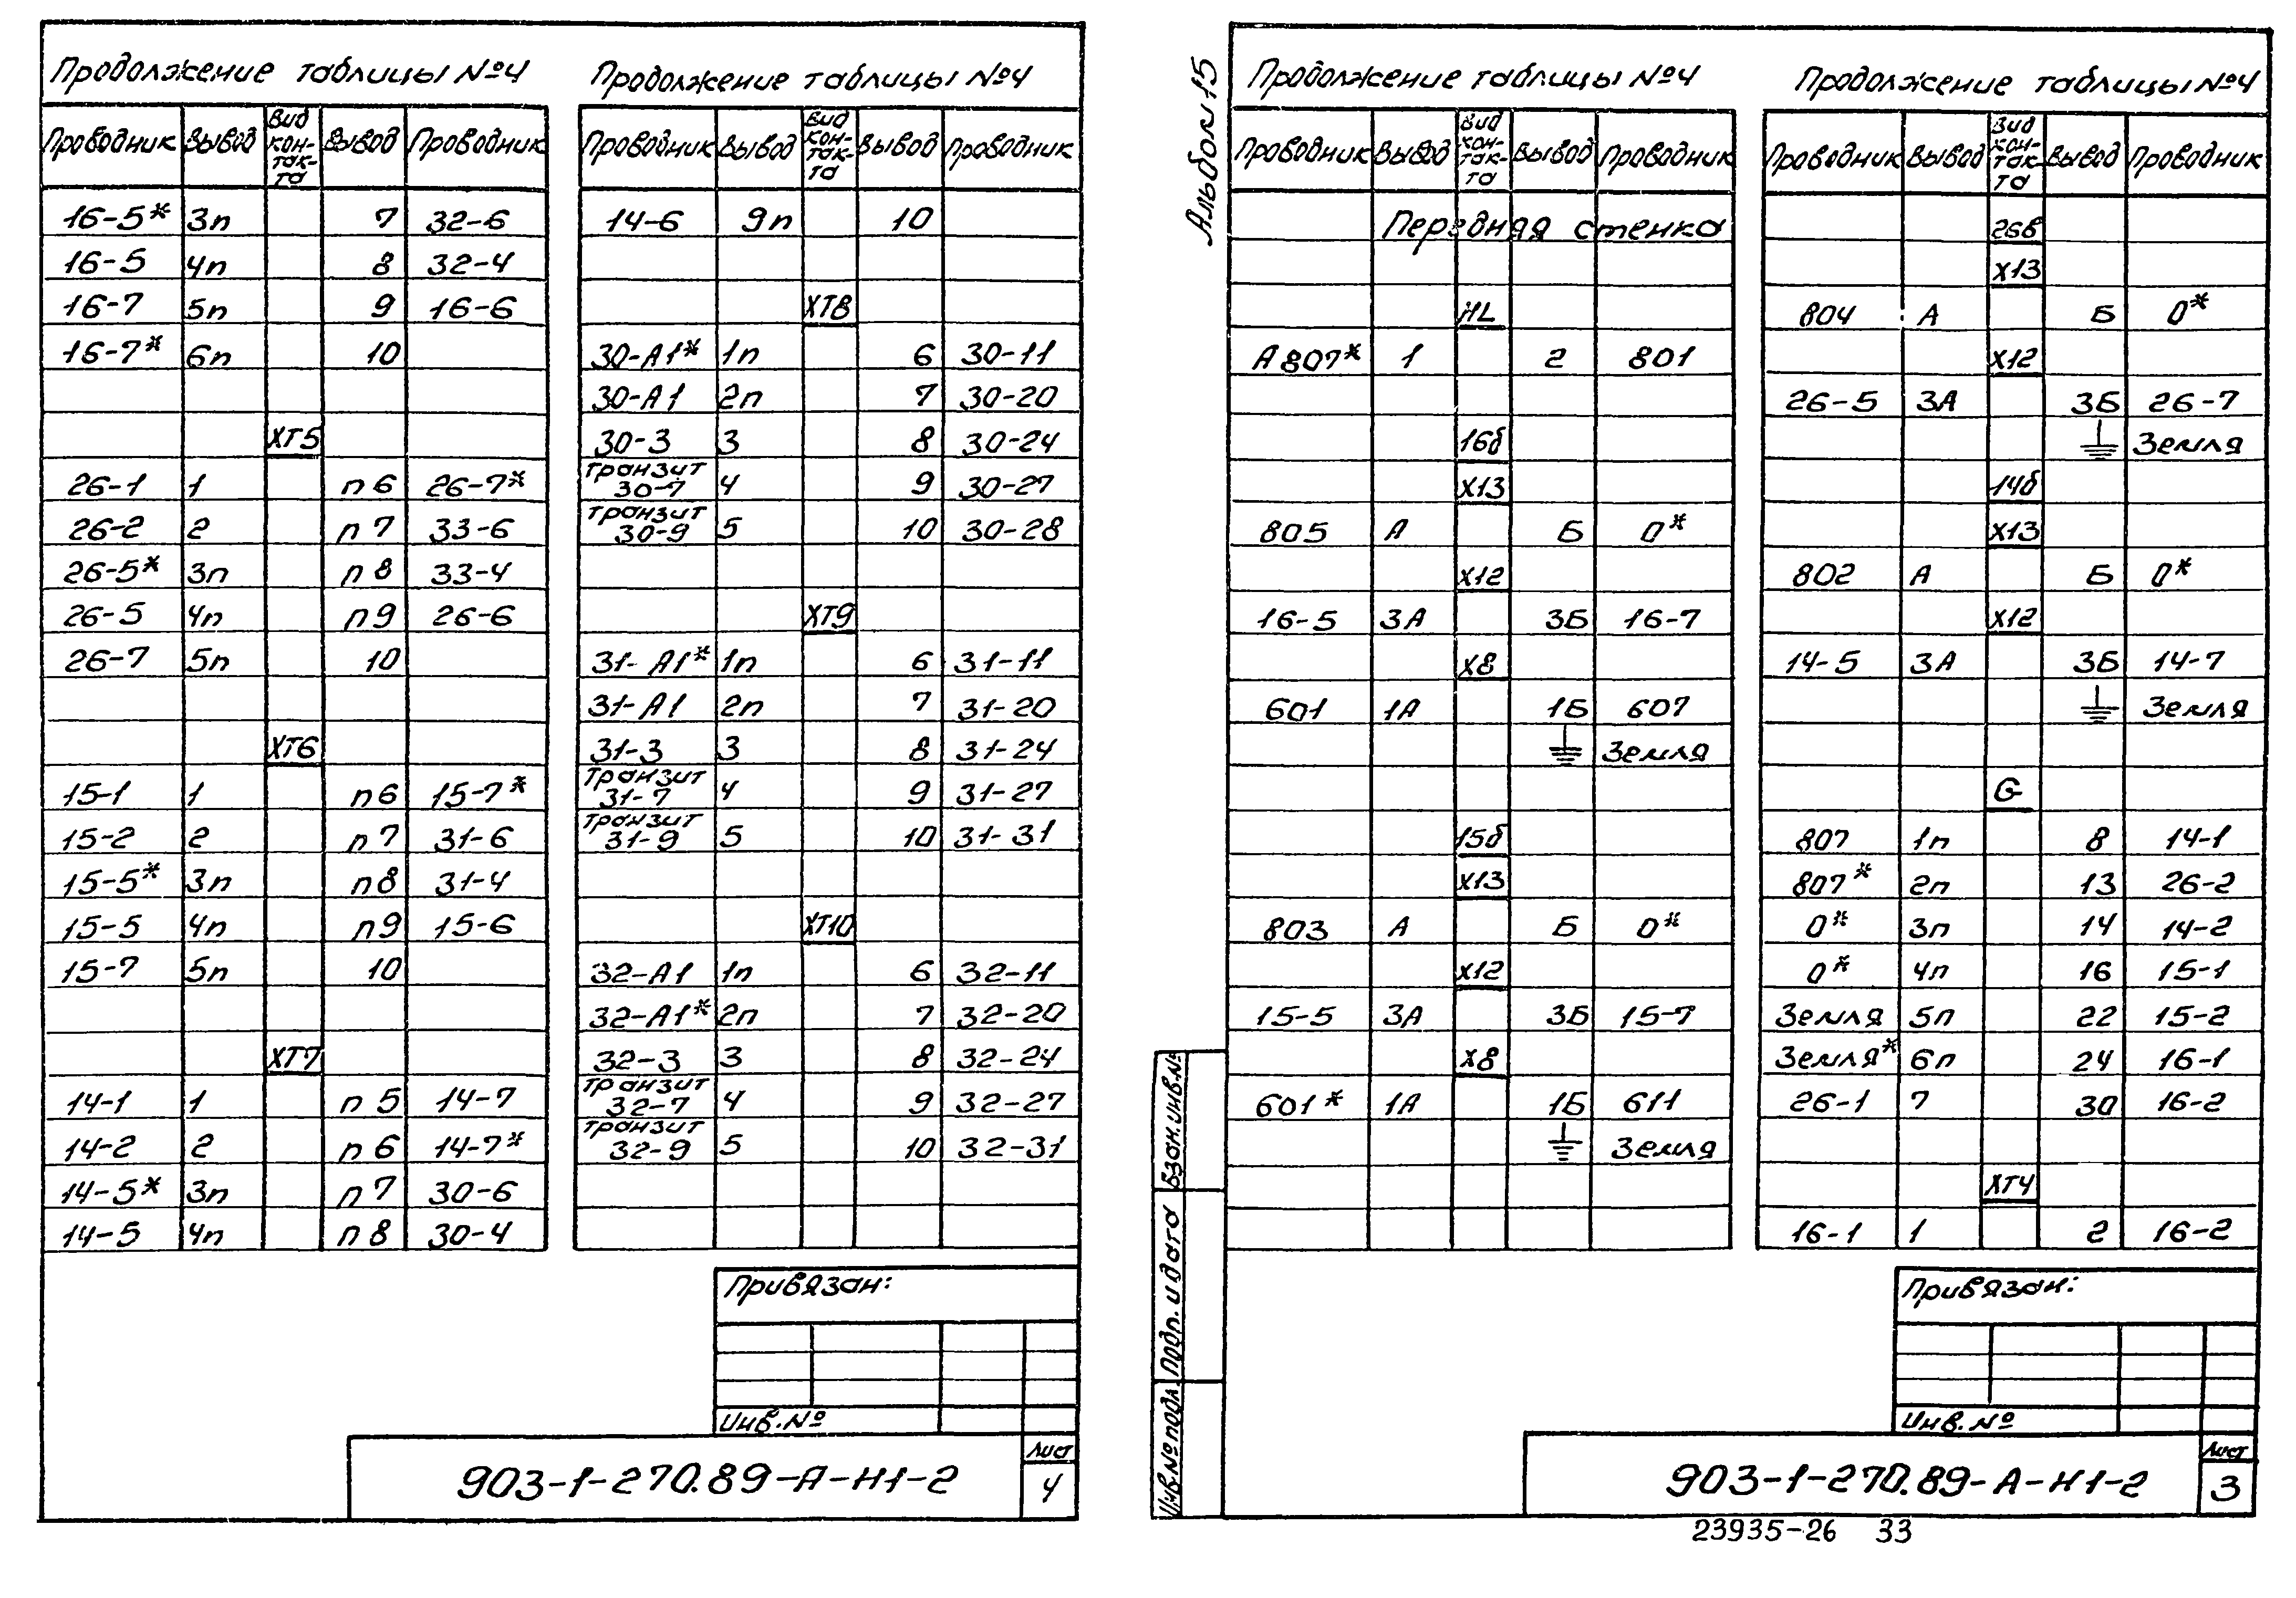 Продолжение таблицы №4
Проводник Вывод Вид кон-так-та Вывод Проводник
16-5* 3п 7 32-6
16-5 4п 8 32-4
16-7 5п 9 16-6
16-7* 6п 10
ХТ5
26-1 1 п6 26-7*
26-2 2 п7 33-6
26-5* 3п п8 33-4
26-5 4п п9 26-6
26-7 5п 10
ХТ6
15-1 1 п6 15-7*
15-2 2 п7 31-6
15-5* 3п п8 31-4
15-5 4п п9 15-6
15-7 5п 10
ХТ7
14-1 1 п5 14-7
14-2 2 п6 14-7*
14-5* 3п п7 30-6
14-5 4п п8 30-4
Продолжение таблицы №4
Проводник Вывод Вид кон-так-та Вывод Проводник
14-6 9п 10
ХТ8
30-А1* 1п 6 30-11
30-А1 2п 7 30-20
30-3 3 8 30-24
транзит 30-7 4 9 30-27
транзит 30-9 5 10 30-28
ХТ9
31-А1* 1п 6 31-11
31-А1 2п 7 31-20
31-3 3 8 31-24
транзит 31-7 4 9 31-27
транзит 31-9 5 10 31-31
ХТ10
32-А1 1п 6 32-11
32-А1* 2п 7 32-20
32-3 3 8 32-24
транзит 32-7 4 9 32-27
транзит 32-9 5 10 32-31
Привязан:
Инв.№
903-1-270.89-А-Н1-2
Лист
4
Альбом 15
Продолжение таблицы №4
Проводник Вывод Вид кон-так-та Вывод Проводник
Передняя стенка
HL
А807* 1 2 801
16б
Х13
805 А Б 0*
Х12
16-5 3А 3Б 16-7
Х8
601 1А 1Б 607
⏚ Земля
15б
Х13
803 А Б 0*
Х12
15-5 3А 3Б 15-7
Х8
601* 1А 1Б 611
⏚ Земля
Продолжение таблицы №4
Проводник Вывод Вид кон-так-та Вывод Проводник
26в
Х13
804 А Б 0*
Х12
26-5 3А 3Б 26-7
⏚ Земля
14б
Х13
802 А Б 0*
Х12
14-5 3А 3Б 14-7
⏚ Земля
G
807 1п 8 14-1
807* 2п 13 26-2
0* 3п 14 14-2
0* 4п 16 15-1
Земля 5п 22 15-2
Земля* 6п 24 16-1
26-1 7 30 16-2
ХТ4
16-1 1 2 16-2
Взам.инв.№
Подп. и дата
Инв.№подл.
Привязан:
Инв.№
903-1-270.89-А-Н1-2
Лист
3
23935-26 33